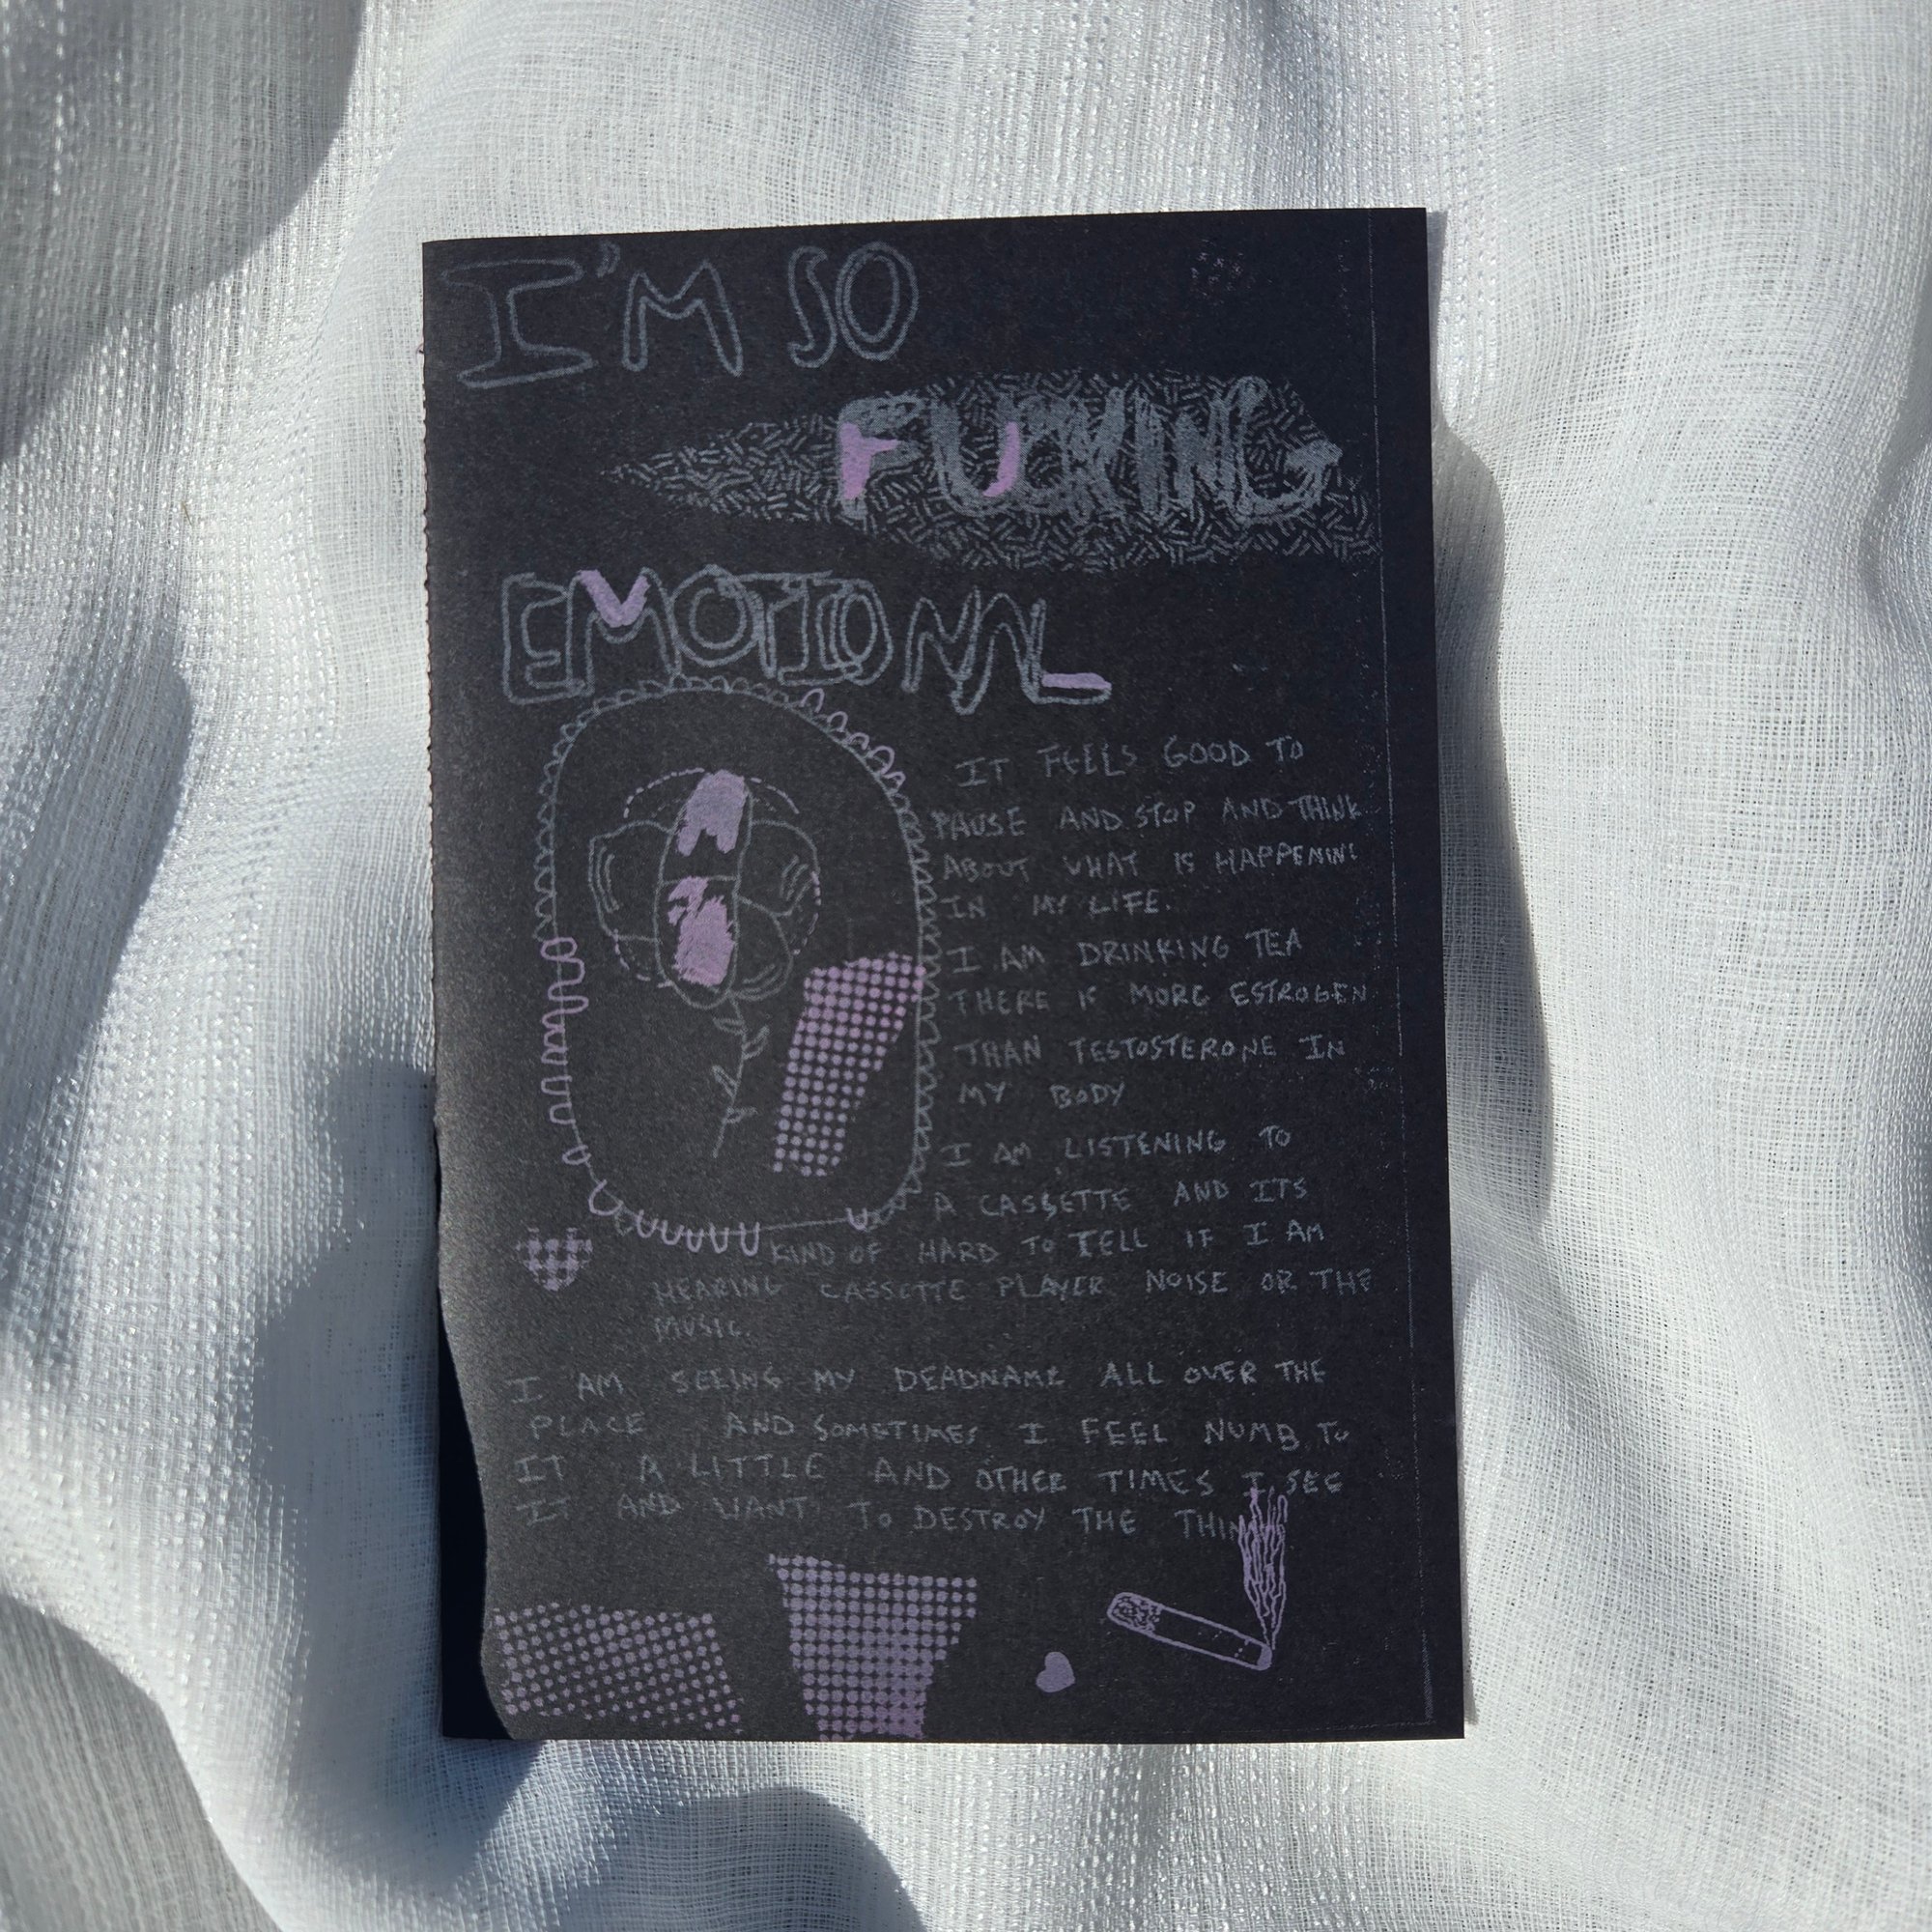 I'M SO
FUCKING
EMOTIONAL
IT FEELS GOOD TO
PAUSE AND STOP AND THINK
ABOUT WHAT IS HAPPENING
IN MY LIFE.
I AM DRINKING TEA
THERE IS MORE ESTROGEN
THAN TESTOSTERONE IN
MY BODY
I AM LISTENING TO
A CASSETTE AND ITS
KIND OF HARD TO TELL IF I AM
HEARING CASSETTE PLAYER NOISE OR THE
MUSIC.
I AM SEEING MY DEADNAME ALL OVER THE
PLACE AND SOMETIMES I FEEL NUMB TO
IT A LITTLE AND OTHER TIMES I SEE
IT AND WANT TO DESTROY THE THING